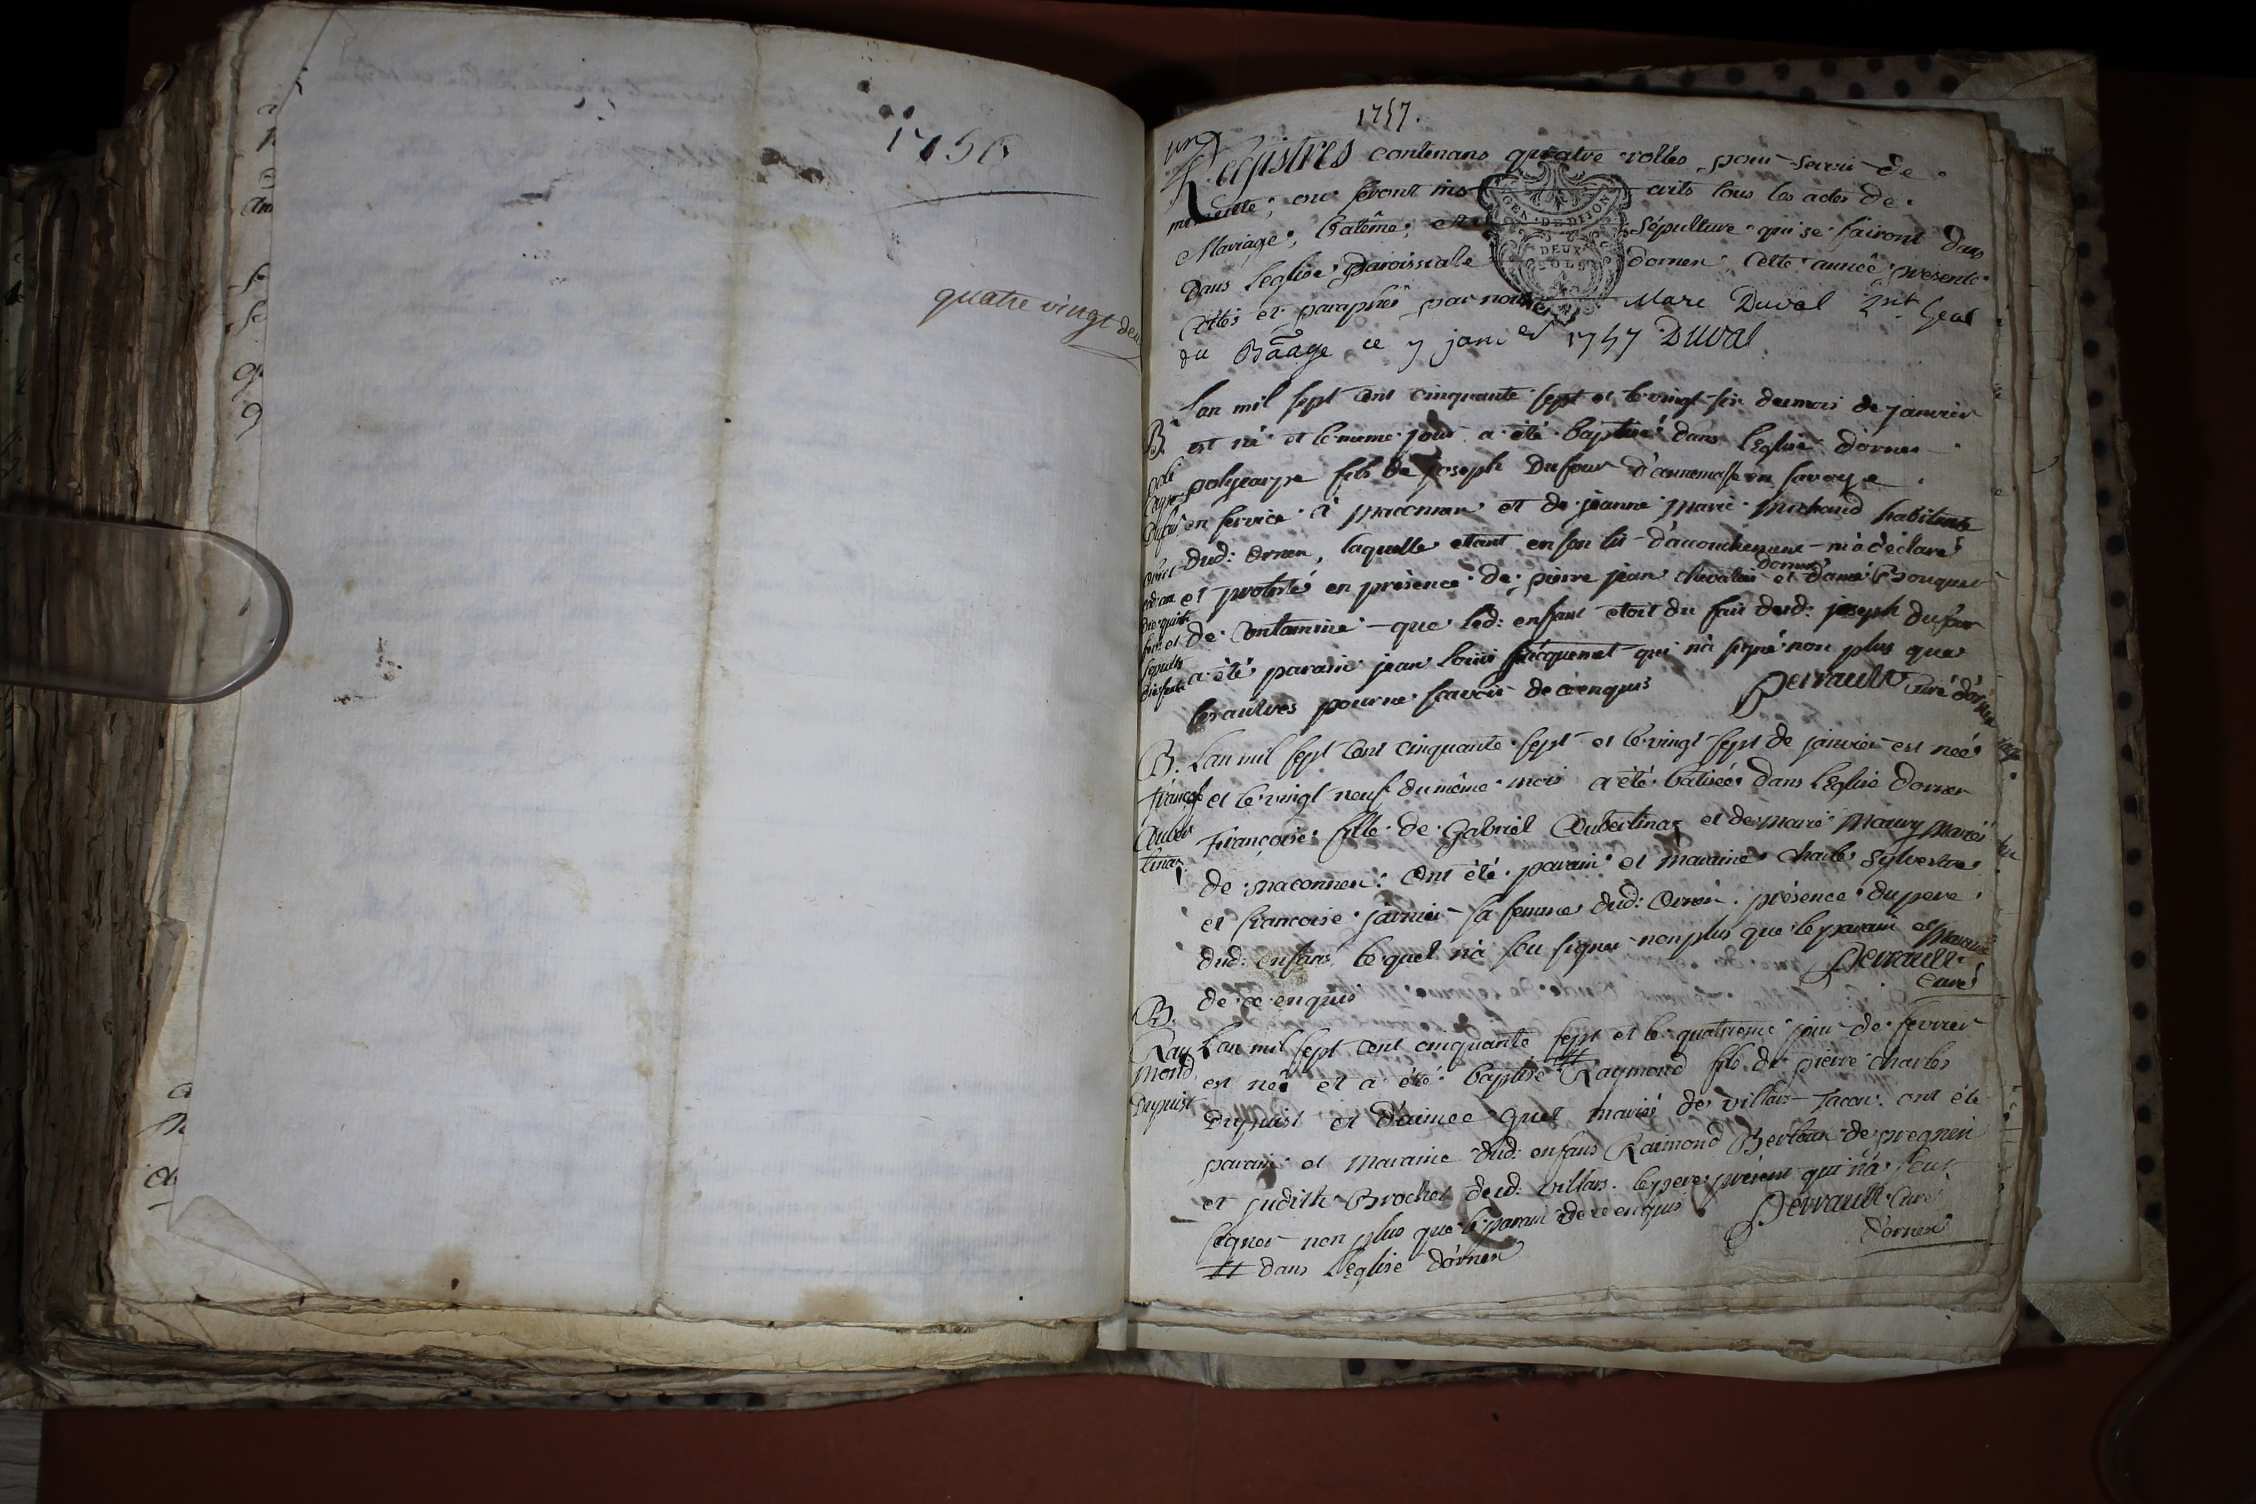 1756
quatre vingt deux
1757.
Registres contenans quatre rolles pour servir de
minutte, ou seront inscrits tous les actes de
Mariage, batême, et Sépulture qui se fairont dans
dans leglise paroissiale dornex cette année présente
Cottés et paraphés par nous Marc Duval Lieut. Geal
du Baage ce 7 janer 1757 Duval
GEN. DE DIJON
DEUX
SOLS
B.
poli
carpe
Dufour
Lan mil sept cent cinquante sept et le vingt six du mois de janvier
est né et le meme jour a été baptisé dans l'Eglise dornex
polycarpe fils de joseph Dufour d'annemasse en savoye
en service à maconnex et de jeanne marie michaud habitante
dud: ornex, laquelle etant en son lit d'accouchement m'a déclaré
et protesté en présence de pierre jean chevalier dornex et d'amé Bouquet
de Contamine que led: enfant etoit du fait dud: joseph dufour
a été parain jean louis jacquemet qui n'a signé non plus que
les autres pour ne scavoir de ce enquis Perrault Curé d'ornex
B.
françoise
Auber
tinaz
Lan mil sept cent cinquante sept et le vingt sept de janvier est née
et le vingt neuf du même mois a été batisée dans l'Eglise dornex
Françoise fille de Gabriel Aubertinaz et de marie Maury mariés
de maconnex. Ont été parain et maraine charles Sylvestre
et francoise farnier sa femme dud: Ornex. présence du pere
dud: enfans lequel n'a sçu signer non plus que le parain et maraine
de ce enquis Perrault
Curé
B.
Ray
mond
Dupuist
Lan mil sept cent cinquante sept et le quatrieme jour de fevrier
est né et a été baptisé # Raymond fils de pierre charles
Dupuist et d'aimee quet mariés de villars Tacon. ont été
parain et maraine dud: enfans Raimond Berthoux de pregnin
et judith Brochet dud: villars. le pere présent qui n'a sceu
signer non plus que le parain de ce enquis Perrault Curé
dornex
# dans l'Eglise dornex